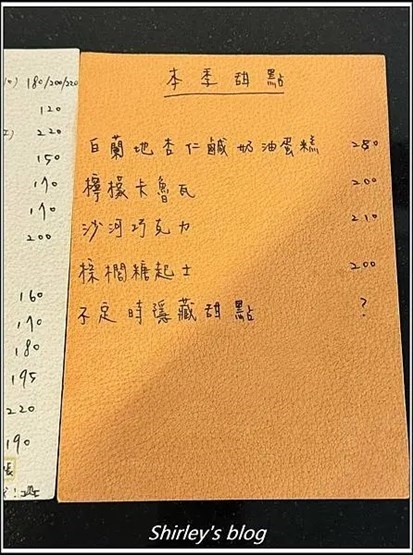 180/200/220
120
220
150
190
190
200
160
190
180
195
220
190
本季甜點
白蘭地杏仁鹹奶油蛋糕 250
檸檬卡魯瓦 200
沙河巧克力 210
棕櫚糖起士 200
不定時隱藏甜點 ?
Shirley's blog